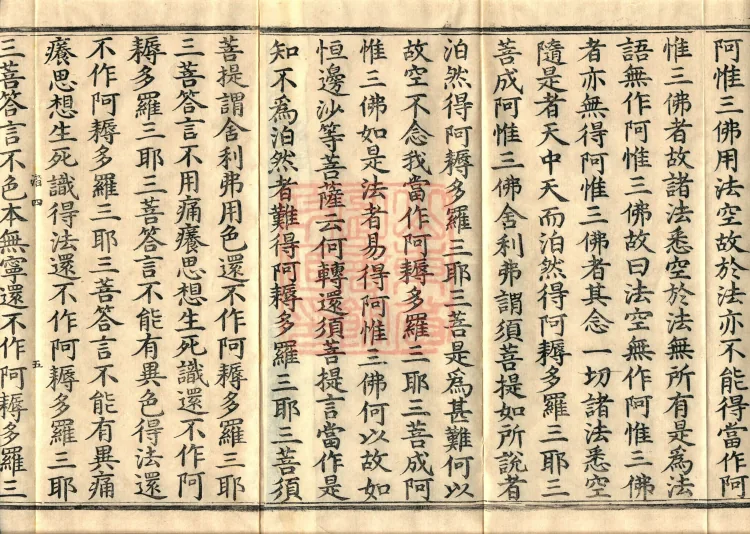 阿惟三佛用法空故於法亦不能得當作阿
惟三佛者故諸法悉空於法無所有是為法
語無作阿惟三佛故曰法空無作阿惟三佛
者亦無得阿惟三佛者其念一切諸法悉空
隨是者天中天而泊然得阿耨多羅三耶三
菩成阿惟三佛舍利弗謂須菩提如所說者
泊然得阿耨多羅三耶三菩是為甚難何以
故空不念我當作阿耨多羅三耶三菩成阿
惟三佛如是法者易得阿惟三佛何以故如
恒邊沙等菩薩云何轉還須菩提言當作是
知不為泊然者難得阿耨多羅三耶三菩須
菩提謂舍利弗用色還不作阿耨多羅三耶
三菩答言不用痛癢思想生死識還不作阿
耨多羅三耶三菩答言不能有異色得法還
不作阿耨多羅三耶三菩答言不能有異痛
癢思想生死識得法還不作阿耨多羅三耶
三菩答言不色本無寧還不作阿耨多羅三
四
五